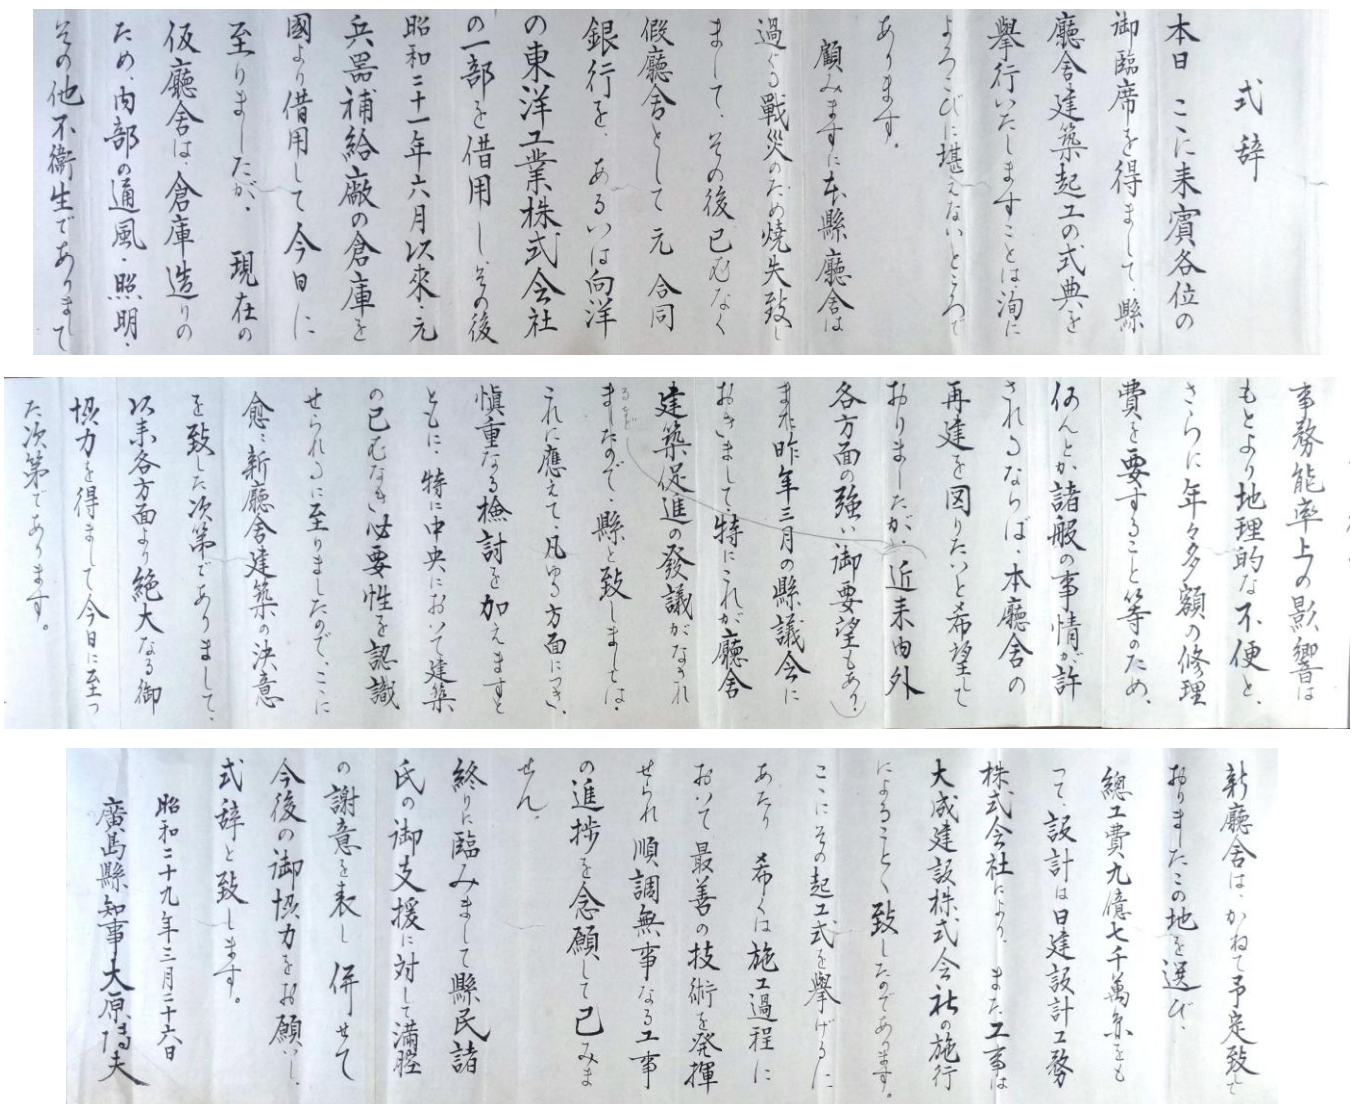 式辞
本日 ここに来賓各位の
御臨席を得まして、縣
廳舎建築起工の式典を
擧行いたしますことは、洵に
よろこびに堪えないところで
あります。
顧みますに本縣廳舎は
過ぐる戰災のため焼失致し
まして、その後已むなく
假廳舎として 元 合同
銀行を、あるいは向洋
の東洋工業株式会社
の一部を借用し、その後
昭和二十一年六月以來、元
兵器補給廠の倉庫を
國より借用して今日に
至りましたが、現在の
仮廳舎は、倉庫造りの
ため、内部の通風、照明、
その他不衞生でありまして
事務能率上の影響は
もとより地理的な不便と、
さらに年々多額の修理
費を要すること等のため、
何んとか諸般の事情が許
されるならば、本廳舎の
再建を図りたいと希望して
おりましたが、近来内外
各方面の強い御要望もあり
また昨年三月の縣議会に
おきまして、特にこれが廳舎
建築促進の發議がなされ
ましたので、縣と致しましては、
これに應えて、凡ゆる方面につき、
慎重なる檢討を加えますと
ともに、特に中央において建築
の已むなき必要性を認識
せられるに至りましたので、ここに
愈々新廳舎建築の決意
を致した次第でありまして、
以来各方面より絶大なる御
協力を得まして今日に至つ
た次第であります。
新廳舎は、かねて予定致して
おりましたこの地を選び、
總工費九億七千萬余をも
つて、設計は日建設計工務
株式会社により、また工事は
大成建設株式会社の施行
によることゝ致したのであります。
ここにその起工式を擧げるに
あたり 希くは施工過程に
おいて最善の技術を発揮
せられ順調無事なる工事
の進捗を念願して已みま
せん。
終りに臨みまして縣民諸
氏の御支援に対して満腔
の謝意を表し 併せて
今後の御協力をお願いし、
式辞と致します。
昭和二十九年三月二十六日
廣島縣知事大原博夫